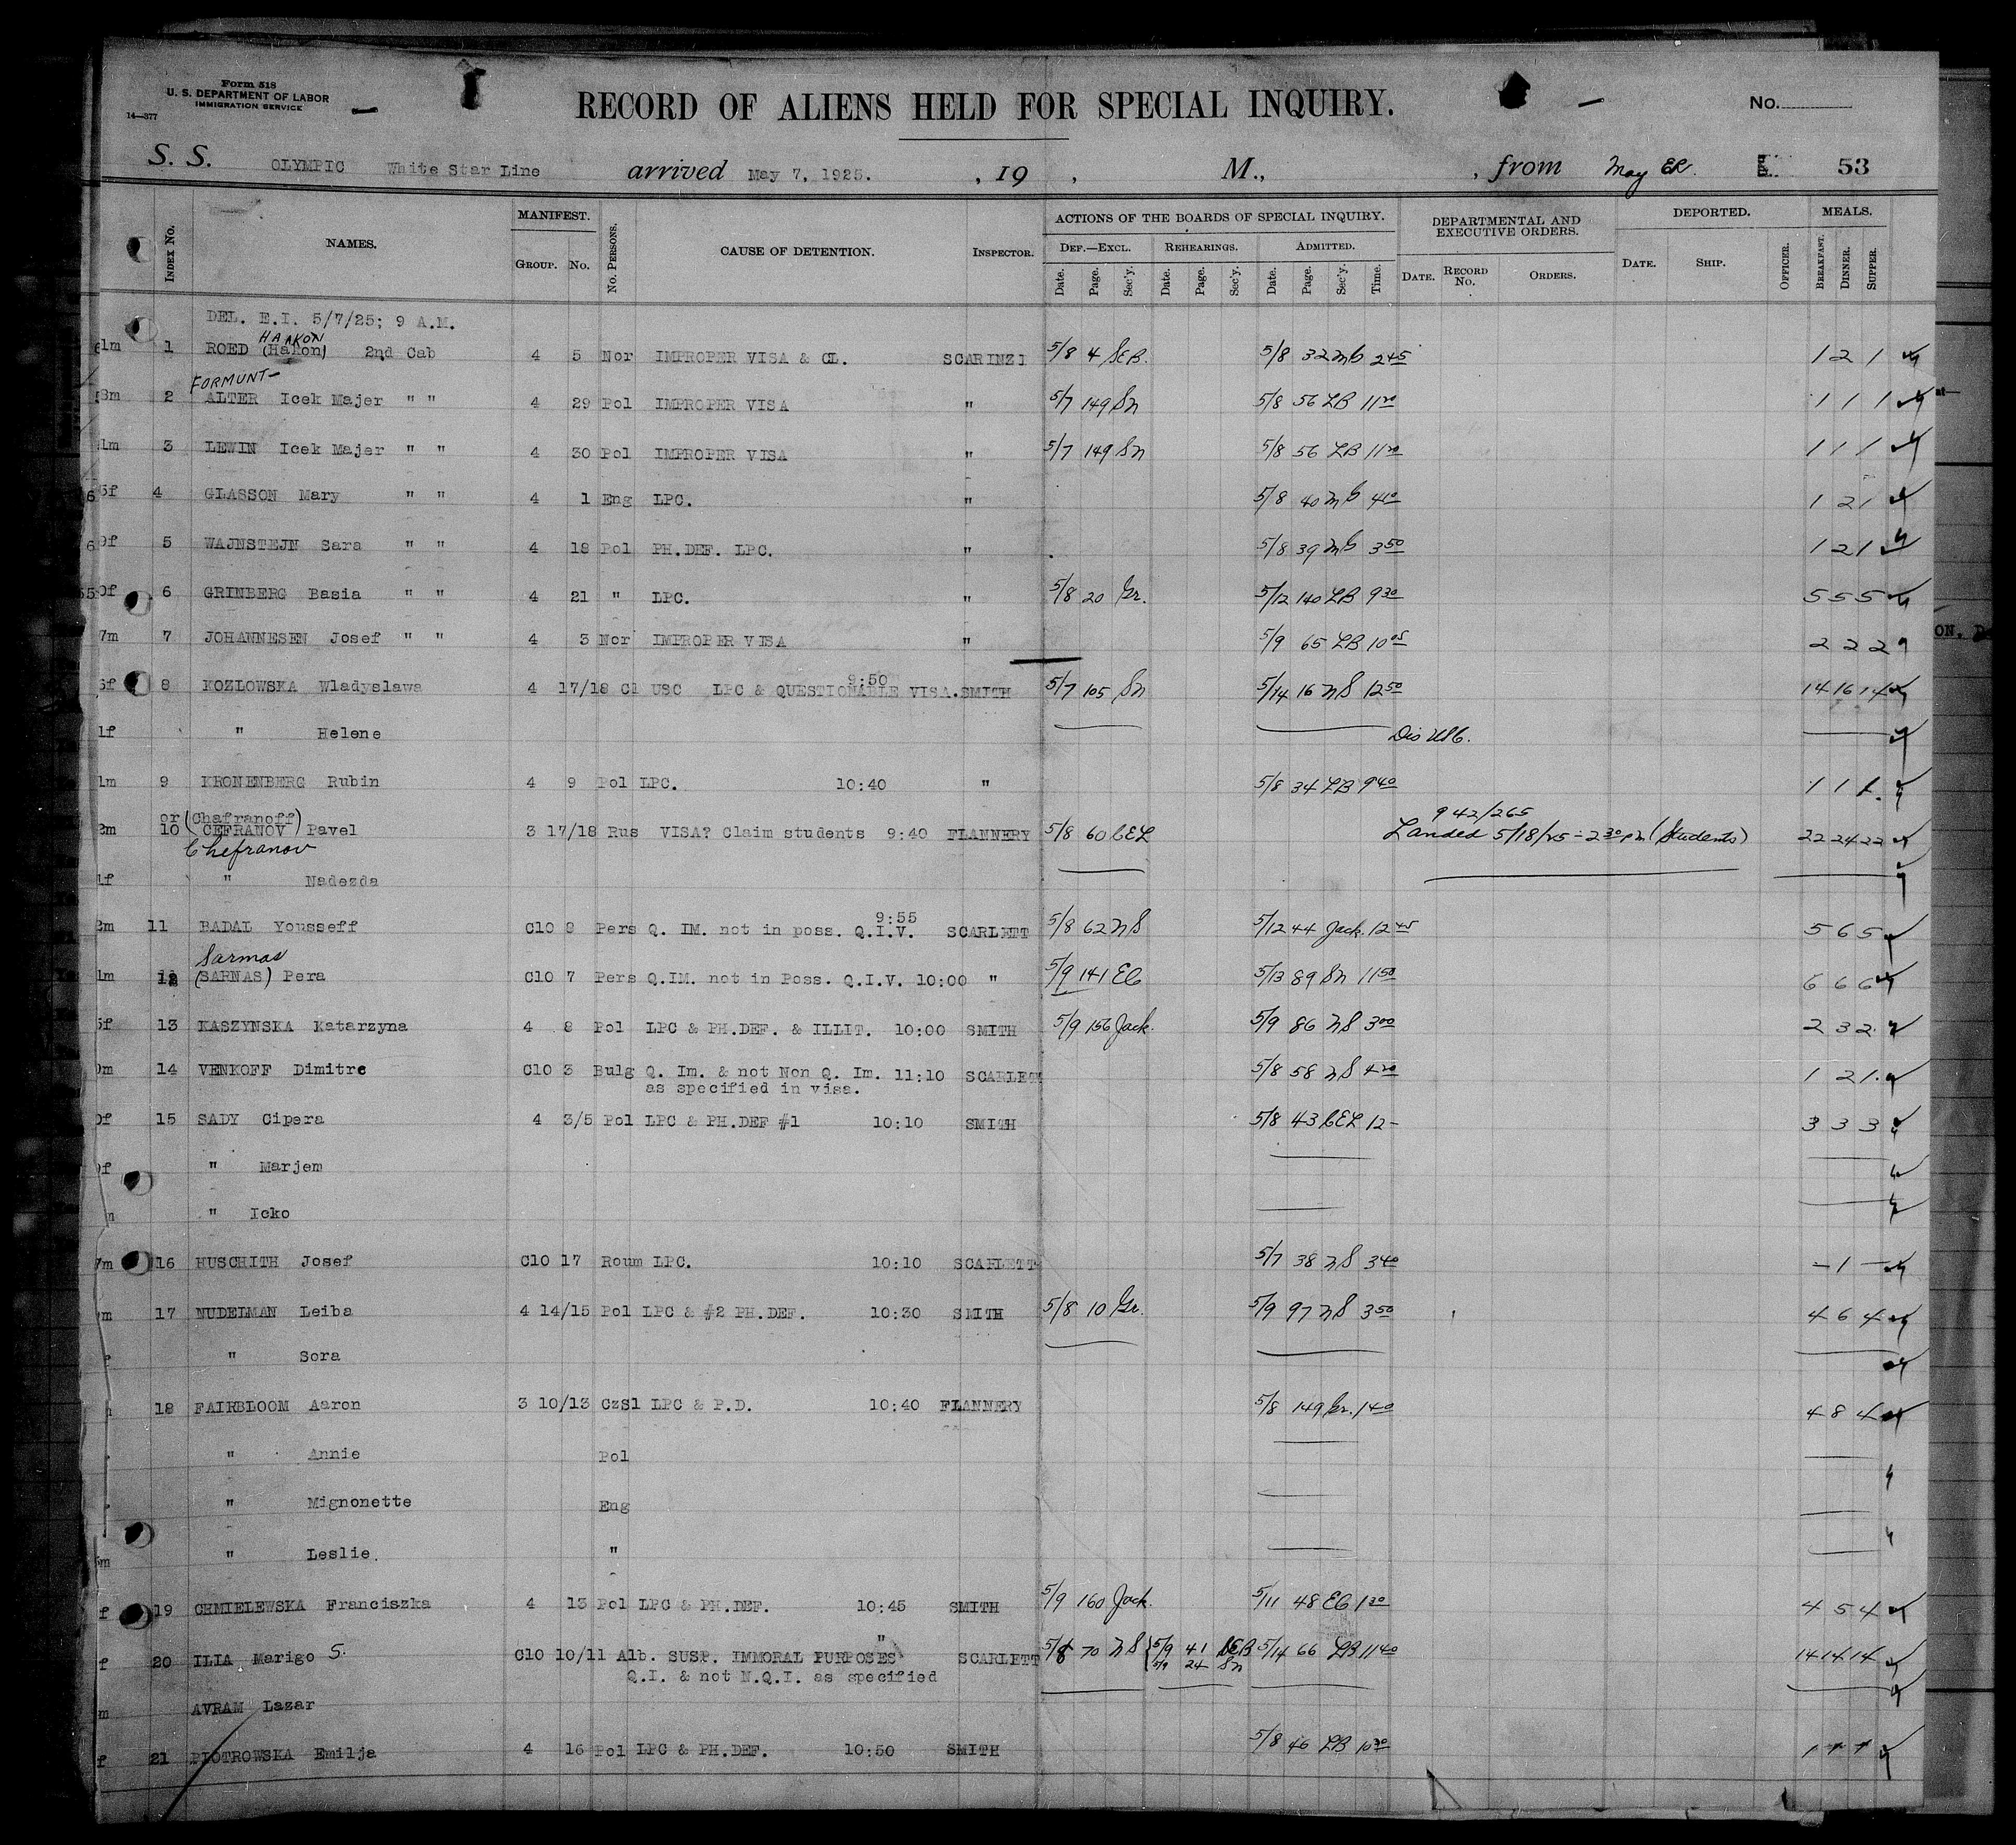 Form 518
U. S. DEPARTMENT OF LABOR
IMMIGRATION SERVICE
14—377
RECORD OF ALIENS HELD FOR SPECIAL INQUIRY.
No.
S. S. OLYMPIC White Star Line arrived May 7, 1925. , 19 , M., , from May 53
INDEX No. NAMES. MANIFEST. GROUP. No. No. PERSONS. CAUSE OF DETENTION. INSPECTOR. ACTIONS OF THE BOARDS OF SPECIAL INQUIRY. DEPARTMENTAL AND EXECUTIVE ORDERS. DEPORTED. MEALS.
DEF.—EXCL. REHEARINGS. ADMITTED.
Date. Page. Sec'y. Date. Page. Sec'y. Date. Page. Sec'y. Time. DATE. RECORD No. ORDERS. DATE. SHIP. OFFICER. BREAKFAST. DINNER. SUPPER.
DEL. E.I. 5/7/25; 9 A.M.
HAAKON
1m 1 ROED (Hakon) 2nd Cab 4 5 Nor IMPROPER VISA & CL. SCARINZI 5/8 4 SEB. 5/8 32 MG 2 45 1 2 1
FORMUNT—
8m 2 ALTER Icek Majer " " 4 29 Pol IMPROPER VISA " 5/7 149 Sn 5/8 56 LB 11 20 1 1 1
1m 3 LEWIN Icek Majer " " 4 30 Pol IMPROPER VISA " 5/7 149 Sn 5/8 56 LB 11 20 1 1 1
65f 4 GLASSON Mary " " 4 1 Eng LPC. " 5/8 40 MG 4 10 1 2 1
69f 5 WAJNSTEJN Sara " " 4 18 Pol PH.DEF. LPC. " 5/8 39 MG 3 50 1 2 1
50f 6 GRINBERG Basia " " 4 21 " LPC. " 5/8 20 Gr. 5/12 140 LB 9 30 5 5 5
7m 7 JOHANNESEN Josef " " 4 3 Nor IMPROPER VISA " 5/9 65 LB 10 05 2 2 2
9:50
5f 8 KOZLOWSKA Wladyslawa 4 17/18 Cl USC LPC & QUESTIONABLE VISA. SMITH 5/7 105 Sn 5/14 16 MS 12 50 14 16 14
1f " Helene Dis USC.
1m 9 KRONENBERG Rubin 4 9 Pol LPC. 10:40 " 5/8 34 LB 9 40 1 1 1.
or (Chafranoff) 942/265
2m 10 (CEFRANOV) Pavel 3 17/18 Rus VISA? Claim students 9:40 FLANNERY 5/8 60 CEL Landed 5/18/25 = 2 30 pm (Students) 22 24 22
Chefranov
1f " Nadezda
9:55
2m 11 BADAL Yousseff C10 8 Pers Q. IM. not in poss. Q.I.V. SCARLETT 5/8 62 MS 5/12 44 Jack. 12 45 5 6 5
Sarmas
1m 12 (SARNAS) Pera C10 7 Pers Q.IM. not in Poss. Q.I.V. 10:00 " 5/9 141 EG 5/13 89 Sn 11 50 6 6 6
5f 13 KASZYNSKA Katarzyna 4 8 Pol LPC & PH.DEF. & ILLIT. 10:00 SMITH 5/9 156 Jack. 5/9 86 MS 3 00 2 3 2.
0m 14 VENKOFF Dimitre C10 3 Bulg Q. Im. & not Non Q. Im. 11:10 SCARLETT 5/8 58 MS 4 20 1 2 1.
as specified in visa.
0f 15 SADY Cipera 4 3/5 Pol LPC & PH.DEF #1 10:10 SMITH 5/8 43 CEL 12 — 3 3 3
f " Marjem
" Icko
7m 16 HUSCHITH Josef C10 17 Roum LPC. 10:10 SCARLETT 5/7 38 MS 3 40 — 1 —
m 17 NUDELMAN Leiba 4 14/15 Pol LPC & #2 PH.DEF. 10:30 SMITH 5/8 10 Gr. 5/9 97 MS 3 50 4 6 4
" Sora
18 FAIRBLOOM Aaron 3 10/13 CzSl LPC & P.D. 10:40 FLANNERY 5/8 149 Gr. 1 40 4 8 4
" Annie Pol
" Mignonette Eng
m " Leslie. "
f 19 CHMIELEWSKA Franciszka 4 13 Pol LPC & PH.DEF. 10:45 SMITH 5/9 160 Jack. 5/11 48 EG 1 30 4 5 4
"
f 20 ILIA Marigo S. C10 10/11 Alb. SUSP. IMMORAL PURPOSES SCARLETT 5/8 70 MS 5/9 41 5/14 66 LB 11 40 14 14 14
Q.I. & not N.Q.I. as specified 5/9 24 Sn
m AVRAM Lazar
f 21 PIOTROWSKA Emilja 4 16 Pol LPC & PH.DEF. 10:50 SMITH 5/8 46 LB 10 30 1 1 1